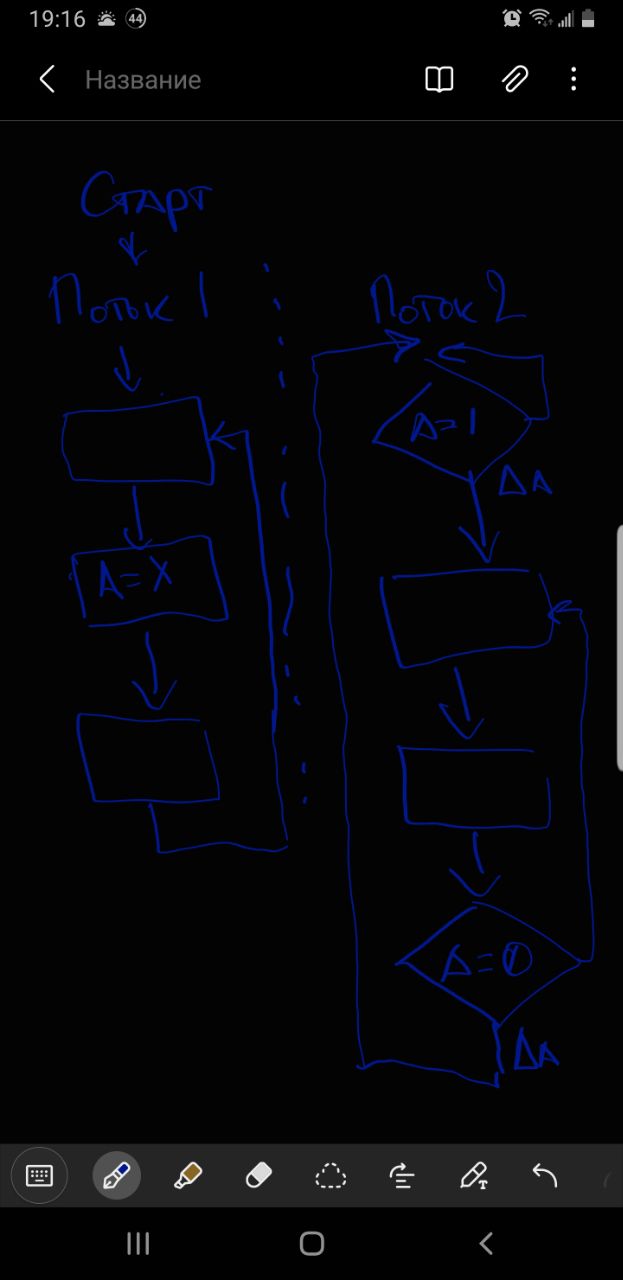 19:16
44
Название
Старт
Поток 1
Поток 2
A=1
ДА
A=X
A=0
ДА